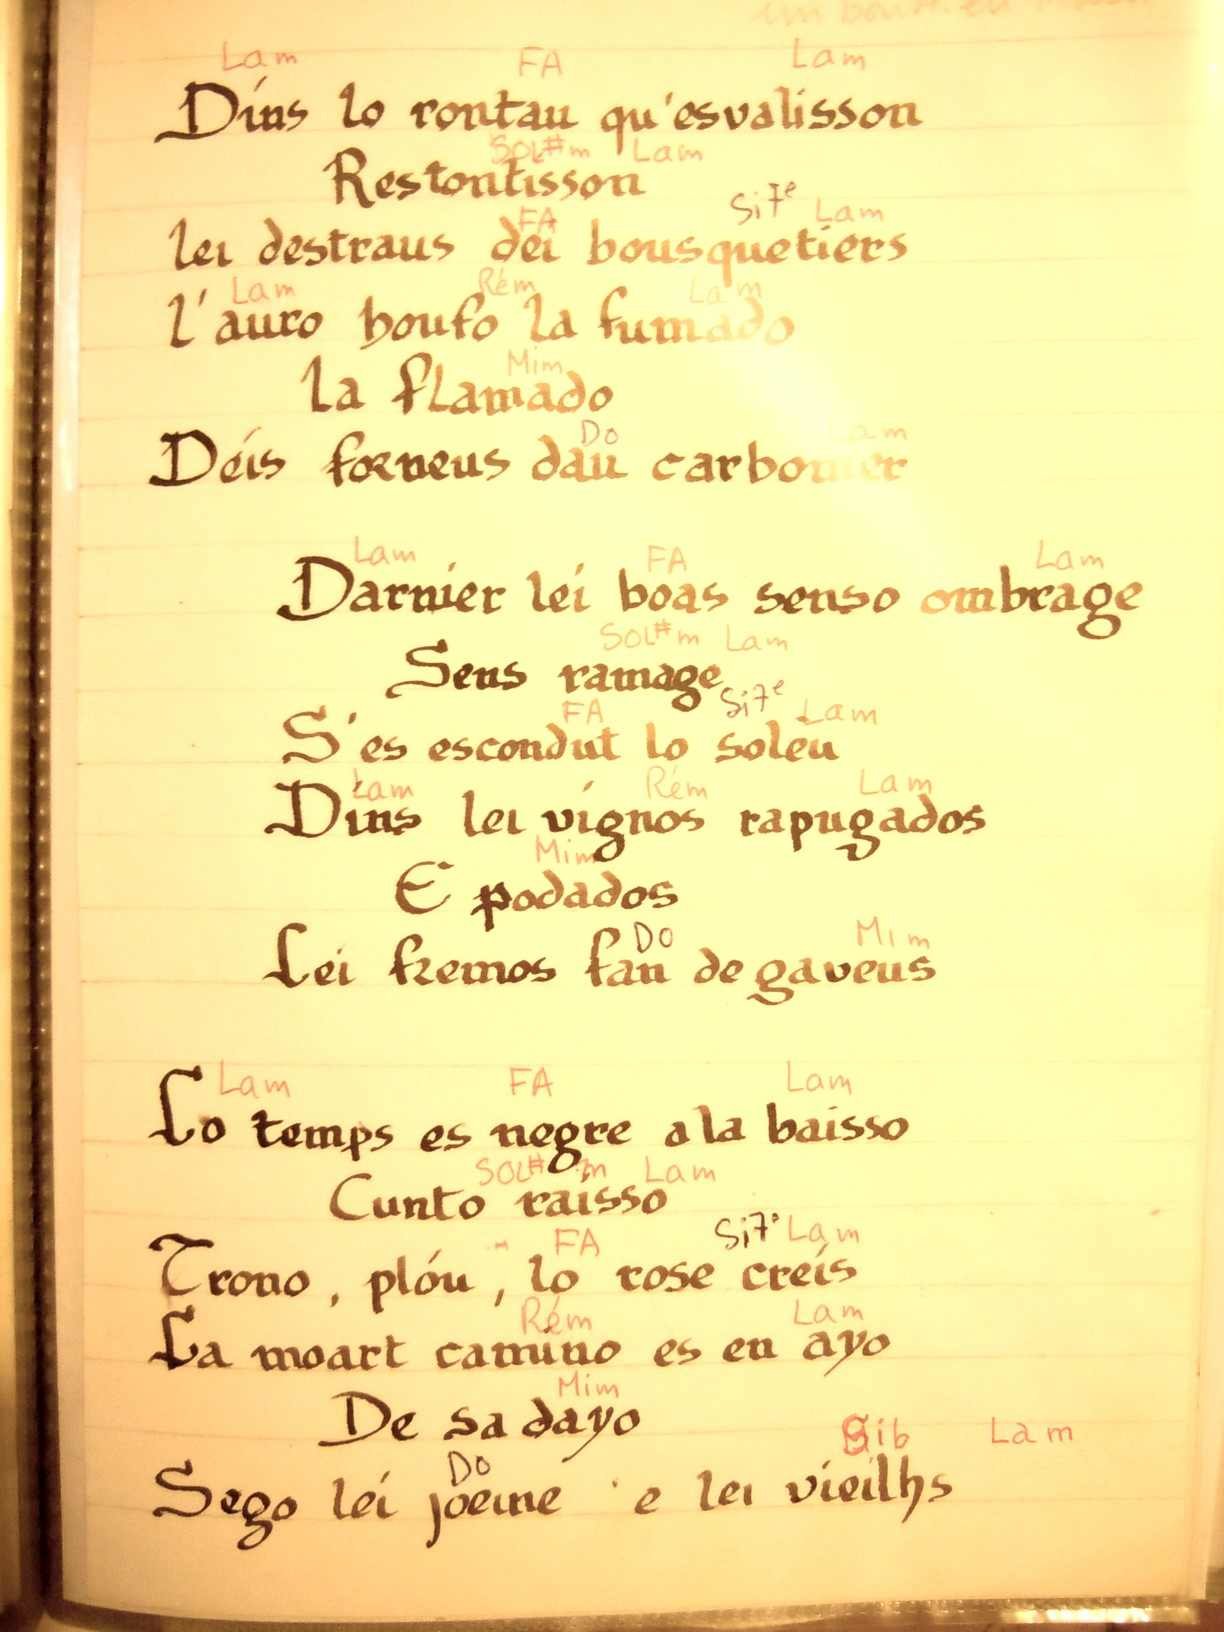 Lam FA Lam
Dins lo rontau qu'esvalisson
SOL#m Lam
Restontisson
FA Si7e Lam
lei destraus dei bousquetiers
Lam Rém Lam
l'auro boufo la fumado
Mim
la flamado
Do Lam
Déis forneus dau carbonier
Lam FA Lam
Darnier lei boas senso ombrage
SOL#m Lam
Sens ramage
FA Si7e Lam
S'es escondut lo soleu
Lam Rém Lam
Dins lei vignos rapugados
Mim
E podados
DO MIm
Lei fremos fan de gaveus
Lam FA Lam
Lo temps es negre a la baisso
SOL#m Lam
Cunto raisso
FA Si7e Lam
Trono, plóu, lo rose creis
Rém Lam
La moart camino es en ayo
Mim
De sa dayo
Do Sib Lam
Sego lei joeine e lei vieilhs